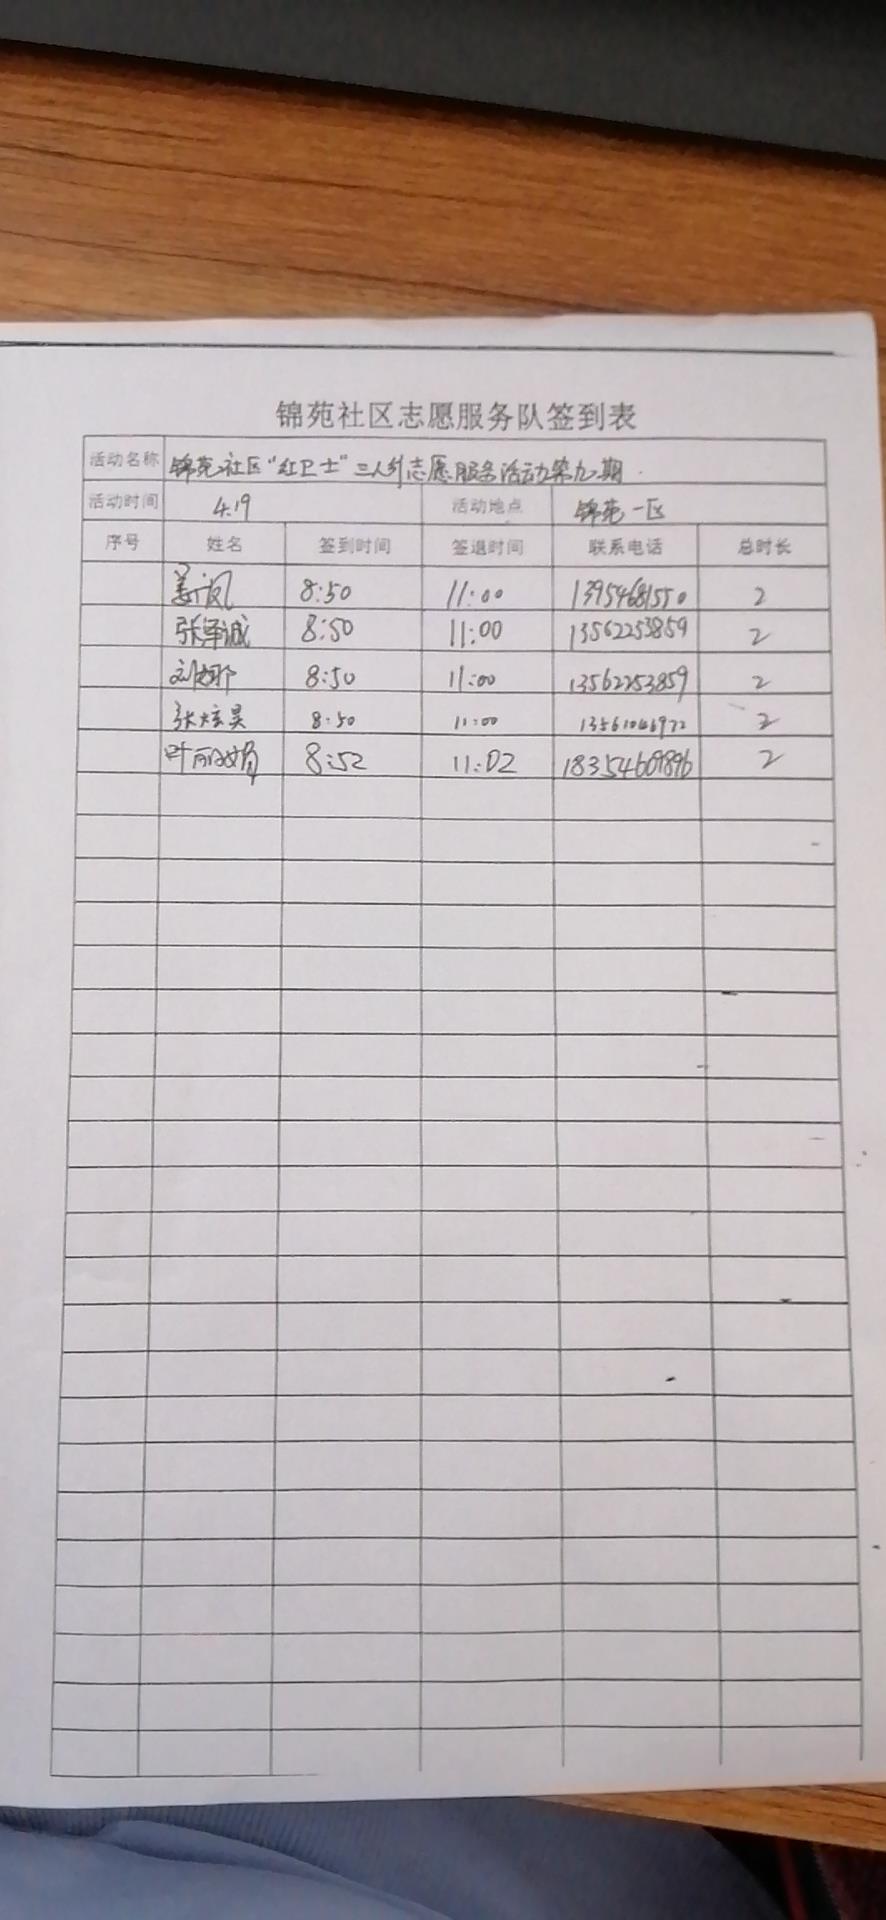 锦苑社区志愿服务队签到表
活动名称 锦苑社区“红卫士”三人行志愿服务活动第九期
活动时间 4.19 活动地点 锦苑一区
序号 姓名 签到时间 签退时间 联系电话 总时长
8:50 11:00 13954681550 2
张泽诚 8:50 11:00 13562253859 2
刘娜 8:50 11:00 13562253859 2
张炫昊 8:50 11:00 2
叶丽娟 8:52 11:02 18354609896 2